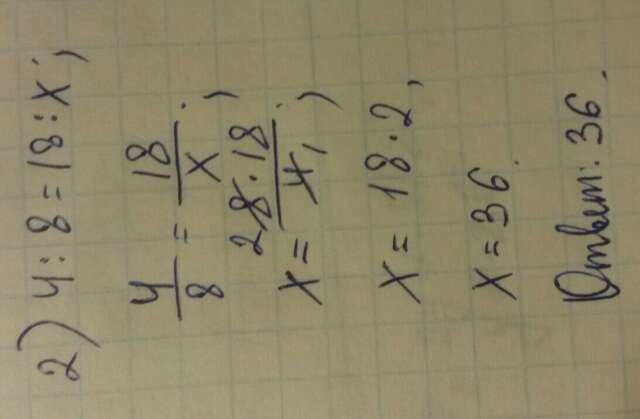 2) 4 : 8 = 18 : x ;
4/8 = 18/x ;
x = 8·18/4 ; 2 1
x = 18 · 2 ,
x = 36.
Ответ: 36.